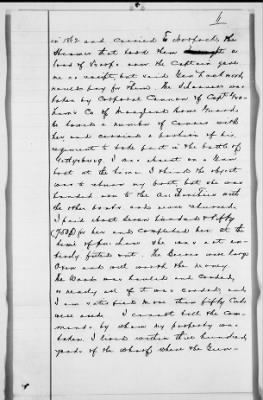 4
in 1862 and carried to Norfolk, the
Steamer that took them a
load of troops and the Captain gave
me no receipt, but said Gen would
pay for them. The Schooner was
taken by Corporal Cannon of Capt
Co of Maryland Home Guards.
he loaded a number of canoes with
her and carried a portion of his
regiment to take part in the battle of
Gettysburg. I was absent on a Gun
boat at the time. I think the object
was to return my boat, but she was
handed over to the Authorities with
the other boats and never returned.
I paid about Seven hundred & fifty
(750$) for her and completed her at the
time of purchase she was not en-
tirely fitted out. The were large
Oxen and well worth the money.
the Wood was hauled and Corded,
or nearly all of it was corded, and
I am satisfied more than fifty Cords
were used. I cannot tell the Com-
mands by whom my property was
taken. I lived within three hundred
yards of the Wharf where the Gun-